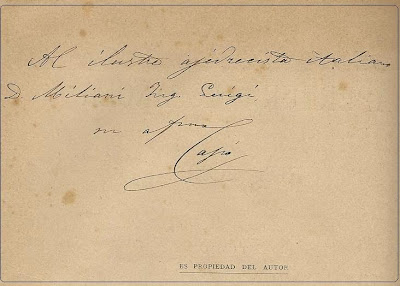 Al ilustre ajedrecista italiano
D. Miliani Ing. Luigi,
su afmo
Capó
ES PROPIEDAD DEL AUTOR